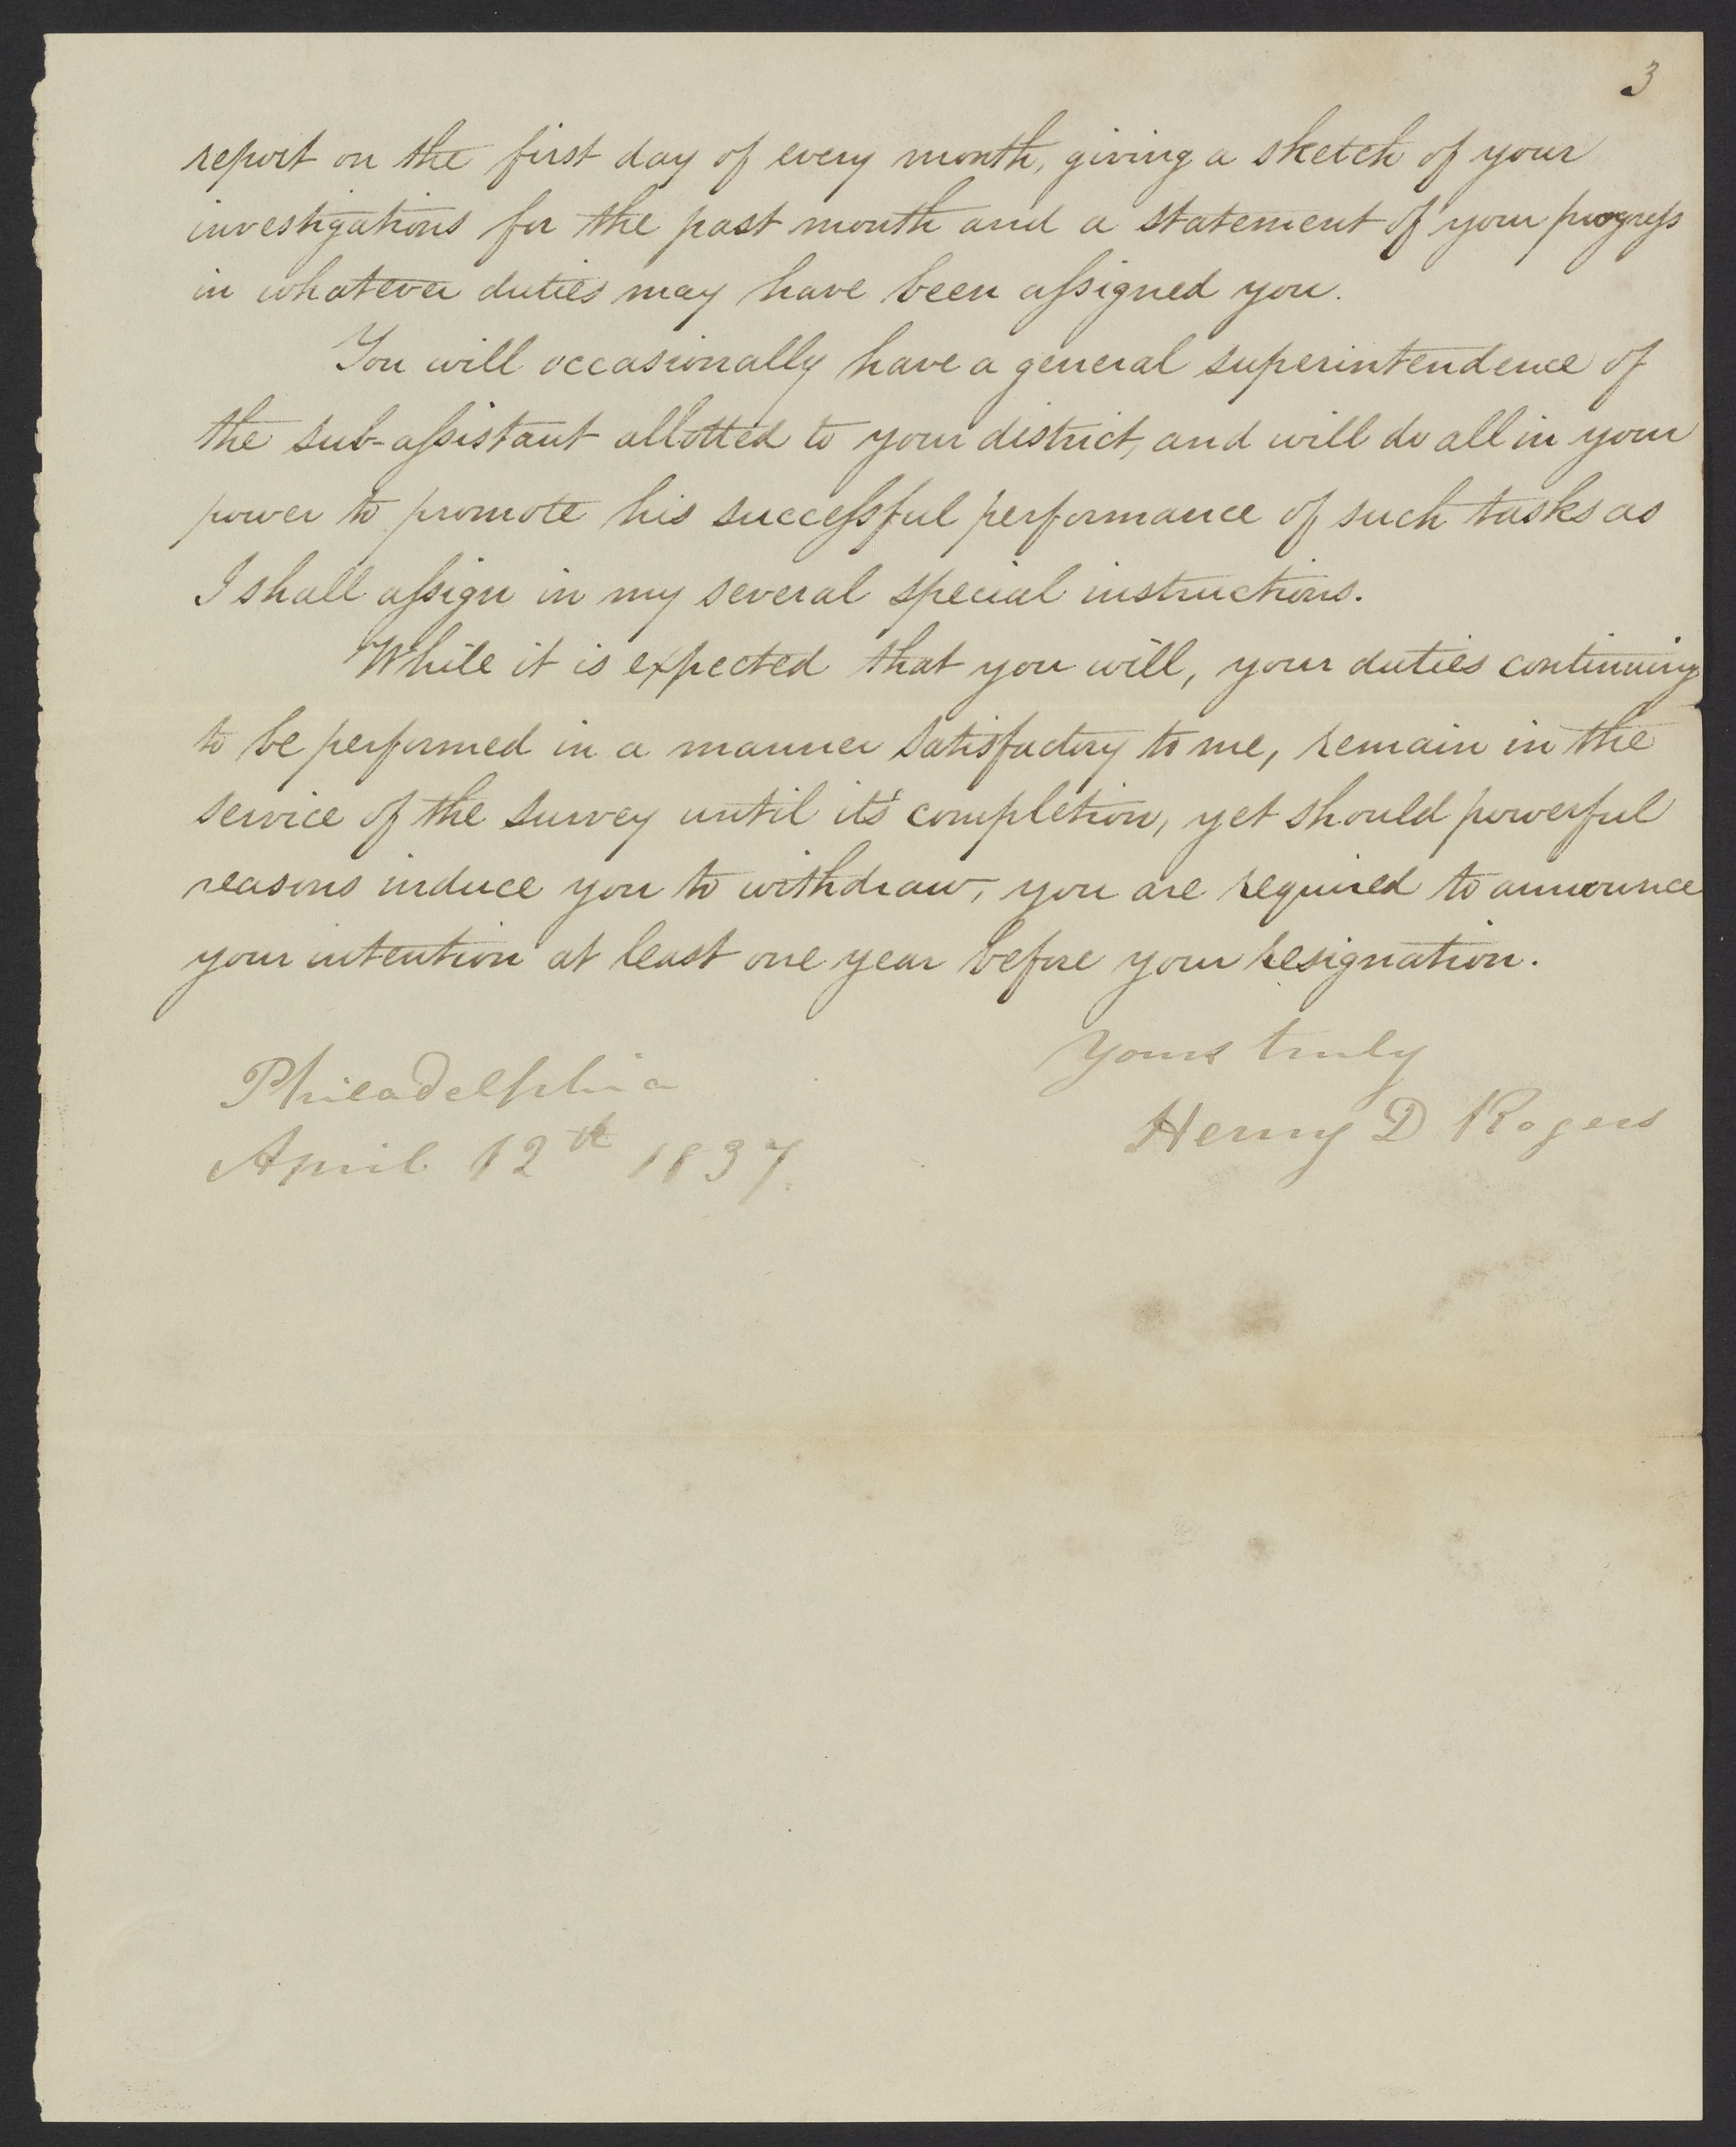 3
report on the first day of every month, giving a sketch of your
investigations for the past month and a statement of your progreſs
in whatever duties may have been aſsigned you.
You will occasionally have a general superintendence of
the sub-aſsistant allotted to your district, and will do all in your
power to promote his succeſsful performance of such tasks as
I shall aſsign in my several special instructions.
While it is expected that you will, your duties continuing
to be performed in a manner satisfactory to me, remain in the
service of the survey until it's completion, yet should powerful
reasons induce you to withdraw, you are required to announce
your intention at least one year before your resignation.
Yours truly
Philadelphia
Henry D Rogers
April 12th 1837.